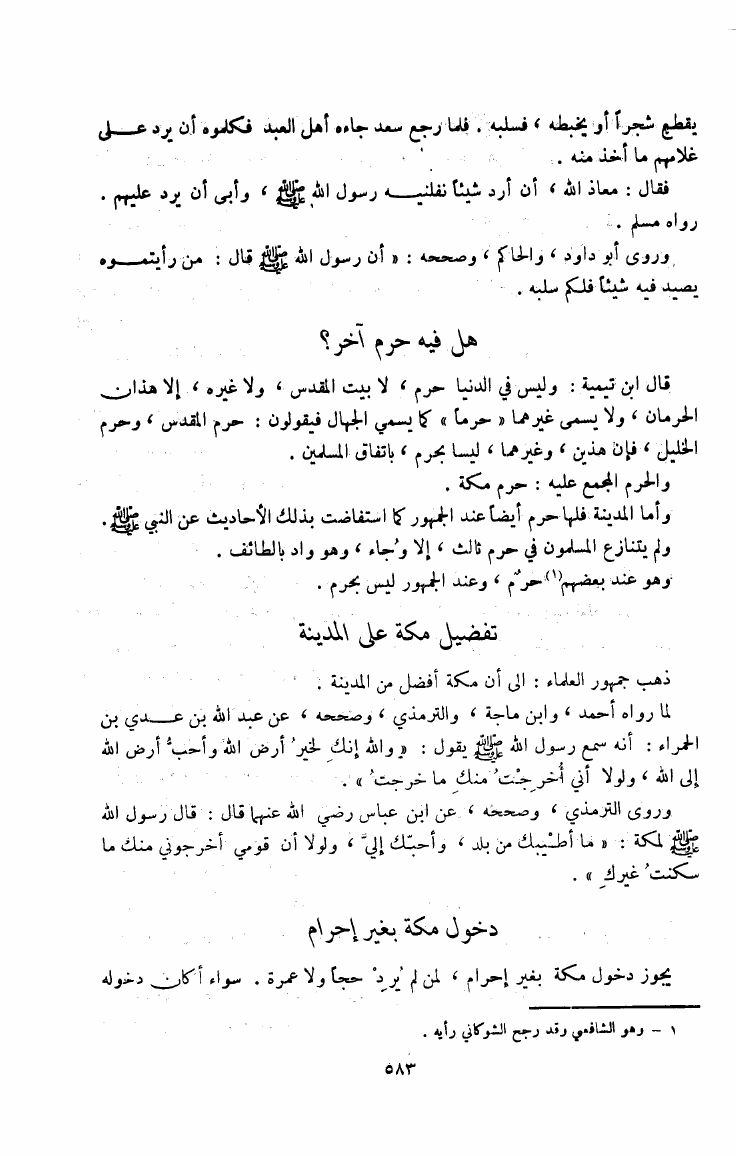 يقطع شجراً أو يخبطه ، فسلبه . فلما رجع سعد جاءه أهل العبد فكلموه أن يرد على
غلامهم ما أخذ منه .
فقال : معاذ الله ، أن أرد شيئاً نفلنيه رسول الله ﷺ ، وأبى أن يرد عليهم .
رواه مسلم .
وروى أبو داود ، والحاكم ، وصححه : « أن رسول الله ﷺ قال : من رأيتموه
يصيد فيه شيئاً فلكم سلبه .
هل فيه حرم آخر؟
قال ابن تيمية : وليس في الدنيا حرم ، لا بيت المقدس ، ولا غيره ، إلا هذان
الحرمان ، ولا يسمى غيرهما « حرماً » كما يسمي الجهال فيقولون : حرم المقدس ، وحرم
الخليل ، فإن هذين ، وغيرهما ، ليسا بحرم ، باتفاق المسلمين .
والحرم المجمع عليه : حرم مكة .
وأما المدينة فلها حرم أيضاً عند الجمهور كما استفاضت بذلك الأحاديث عن النبي ﷺ .
ولم يتنازع المسلمون في حرم ثالث ، إلا وُجاء ، وهو واد بالطائف .
وهو عند بعضهم(١) حرمٌ ، وعند الجمهور ليس بحرم .
تفضيل مكة على المدينة
ذهب جمهور العلماء : الى أن مكة أفضل من المدينة .
لما رواه أحمد ، وابن ماجة ، والترمذي ، وصححه ، عن عبد الله بن عدي بن
الحمراء : أنه سمع رسول الله ﷺ يقول : « والله إنكِ لخيرُ أرض الله وأحبُّ أرض الله
إلى الله ، ولولا أني أُخرِجْتُ منكِ ما خرجتُ » .
وروى الترمذي ، وصححه ، عن ابن عباس رضي الله عنهما قال : قال رسول الله
ﷺ لمكة : « ما أطْيبك من بلد ، وأحبّك إليَّ ، ولولا أن قومي أخرجوني منك ما
سكنتُ غيركِ » .
دخول مكة بغير إحرام
يجوز دخول مكة بغير إحرام ، لمن لم يُرِدْ حجاً ولا عمرة . سواء أكان دخوله
١ – وهو الشافعي وقد رجح الشوكاني رأيه .
٥٨٣